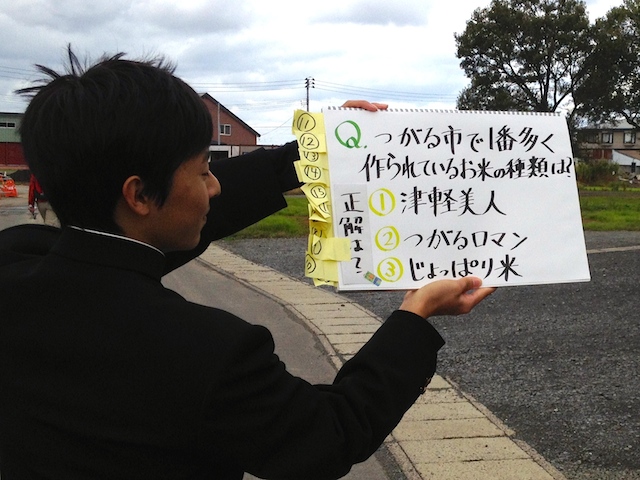 Q. つがる市で1番多く
作られているお米の種類は?
① 津軽美人
② つがるロマン
③ じょっぱり米
正解は?
⑪
⑫
⑬
⑭
⑮